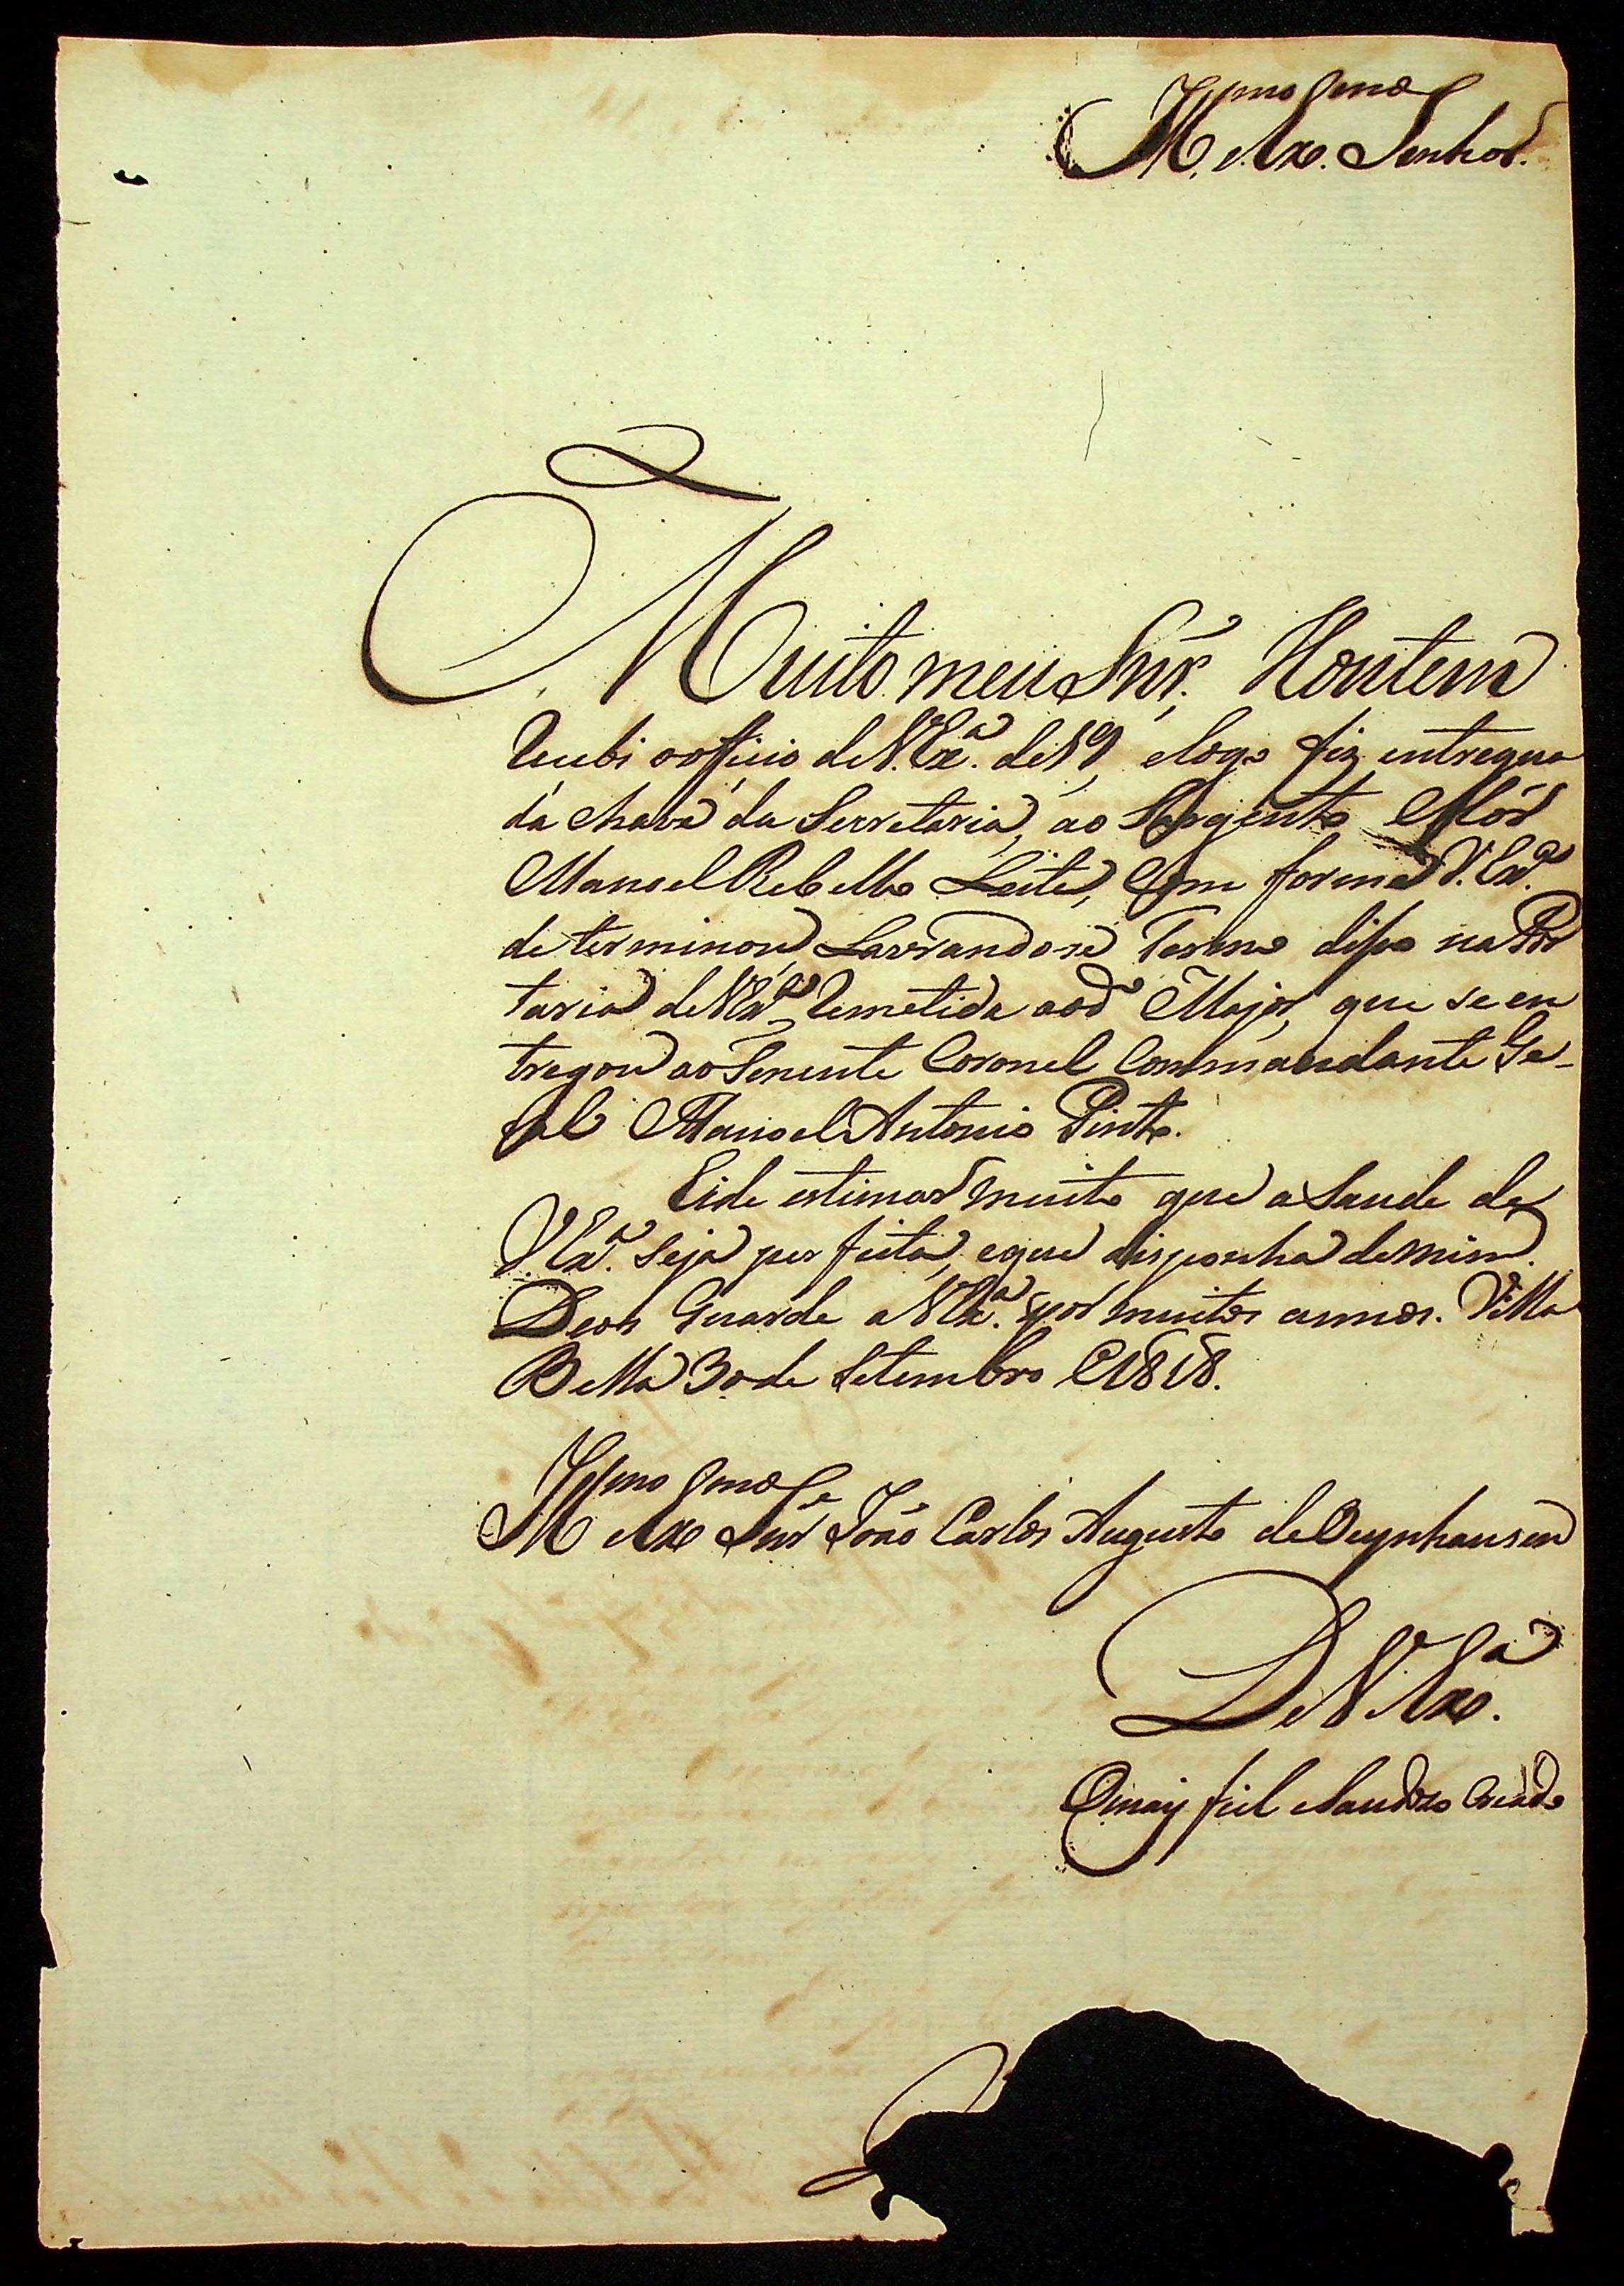 Ill.mo e Ex.mo Senhor.
Muito meu Snr. Hontem
recebi o officio de V. Ex.a de 19, e logo fiz entregua
da chava da Secretaria, ao Sargento Mór
Manoel Rebello Leite, comforme V. Ex.a
determinou, Lavrandose Termo disso na Por
taria de V. Ex.a remetida ao d.o Major, que se en
tregou ao Tenente Coronel Commandante Ge-
ral Manoel Antonio Pinto.
Eide estimar muito que a Saude de
V. Ex.a seja perfeita, e que disponha de mim.
Deos Guarde a V. Ex.a por muitos annos. Villa
Bella 30 de Setembro de 1818.
Ill.mo e Ex.mo Snr. João Carlos Augusto de Oeynhausen
De V. Ex.a
O mais fiel e Criado